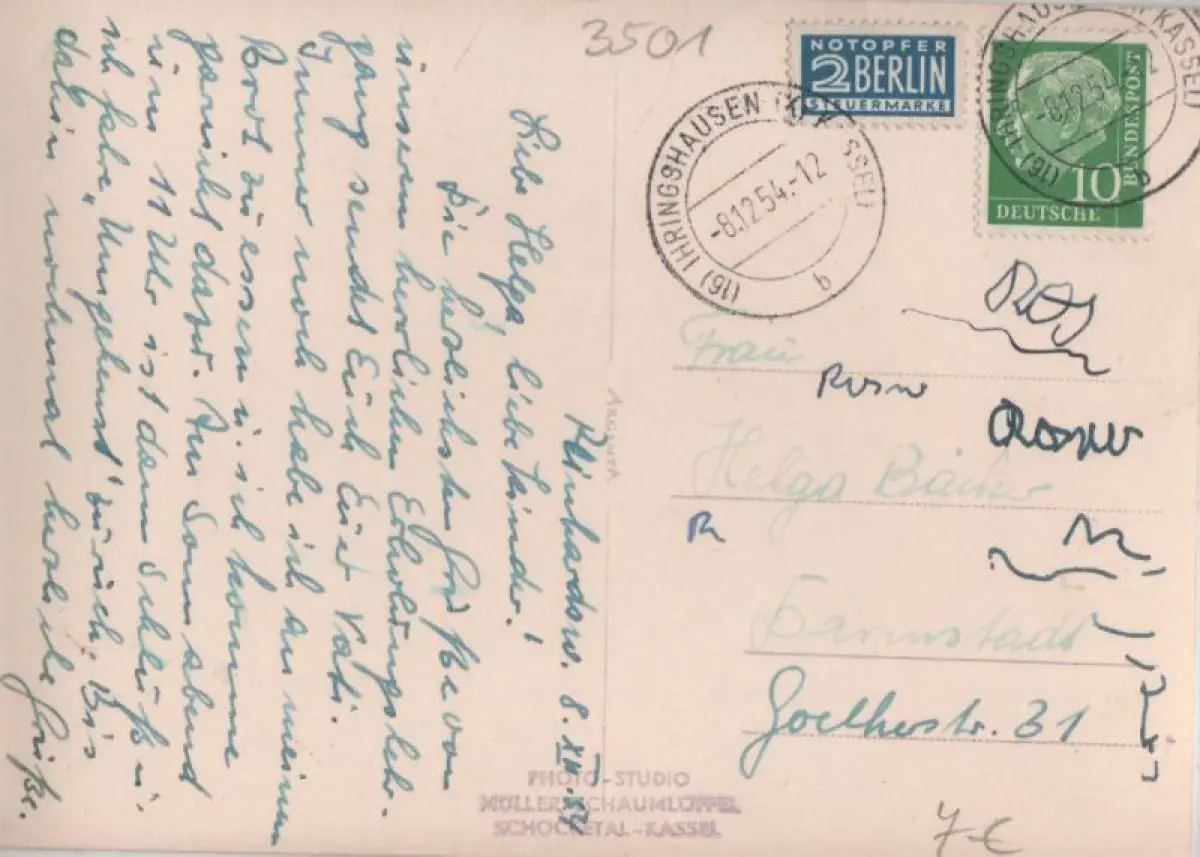 3501
NOTOPFER
2 BERLIN
STEUERMARKE
(16) IHRINGSHAUSEN KASSEL)
-8.12.54.-12
b
(16) IHRINGSHAUSEN KASSEL)
-8.12.54
b
10
BUNDESPOST
DEUTSCHE
8. XII. 54
Liebe Helga, liebe Kinder!
Die herzlichsten Grüße von
unserem herrlichen Erholungslehr-
gang sendet Euch Euer Vati.
Immer noch habe ich an meinem
Brot zu essen u. ich komme
garnicht dazu. Am Sonnabend
um 11 Uhr ist dann Schluß u.
ich fahre "umgehend" zurück. Bis
dahin nochmal herzliche Grüße.
ARGENTA
Frau
Helga
Darmstadt
Goethestr. 31
PHOTO-STUDIO
MÜLLER-SCHAUMLÖFFEL
SCHOCKETAL-KASSEL
7-€